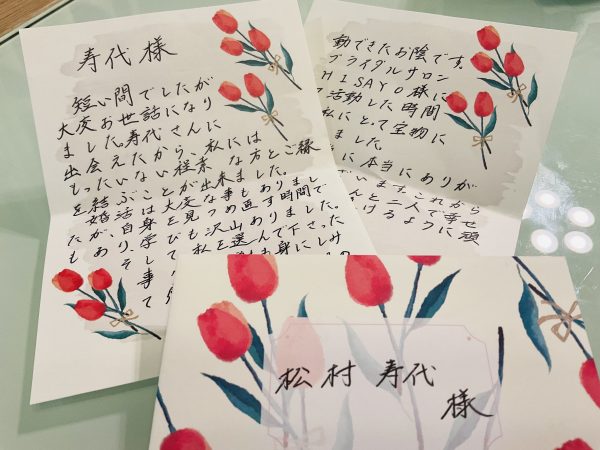 寿代様
短い間でしたが
大変お世話になり
ました。寿代さんに
出会えたから、私には
もったいない程素 な方とご縁
を結ぶことが出来ました。
婚活は大変な事もありまし
たが、自身を見つめ直す時間で
もあり、学びも沢山ありました。
そして 私を選んで下さった
事 身にしみ
て
動できたお陰です。
ブライダルサロン
HISAYO様に
て活動した時間
私にとって宝物に
ました。
に本当にありが
います。これから
んと二人で幸せ
けるように頑
松村 寿代
様